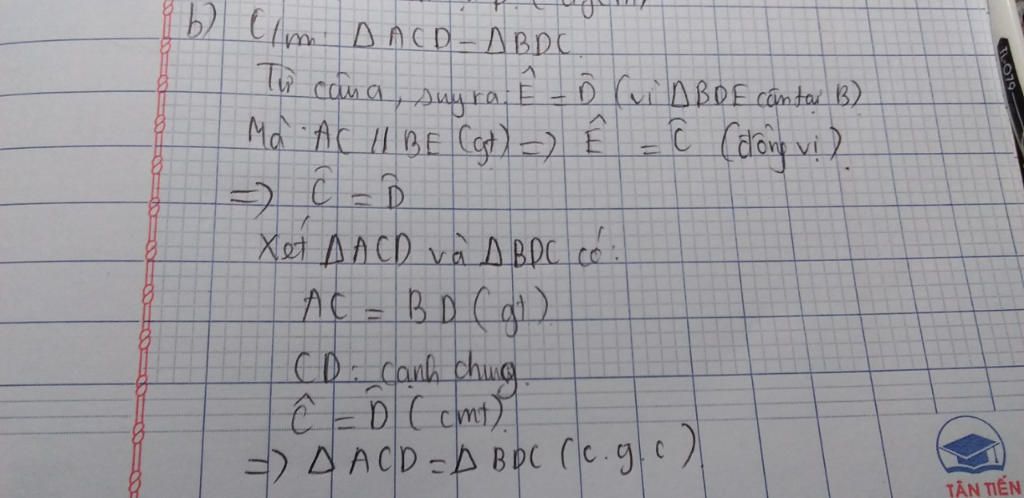 b) C/m: ΔACD = ΔBDC.
Từ câu a, suy ra: Ê = D̂ (vì ΔBDE cân tại B)
Mà AC // BE (gt) => Ê = Ĉ (đồng vị).
=> Ĉ = D̂
Xét ΔACD và ΔBDC có:
AC = BD (gt)
CD: cạnh chung.
Ĉ = D̂ (cmt).
=> ΔACD = ΔBDC (c.g.c)
TÂN TIẾN